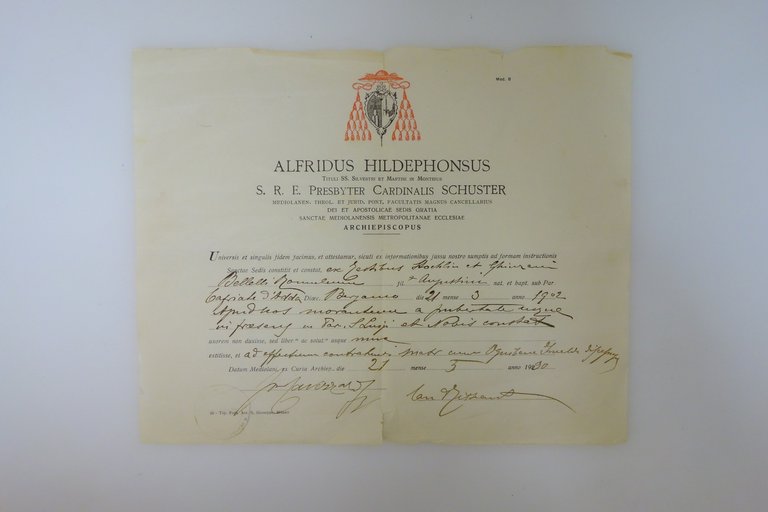 Mod. B
ALFRIDUS HILDEPHONSUS
TITULI SS. SILVESTRI ET MARTINI IN MONTIBUS
S. R. E. PRESBYTER CARDINALIS SCHUSTER
MEDIOLANEN. THEOL. ET JURID. PONT. FACULTATIS MAGNUS CANCELLARIUS
DEI ET APOSTOLICAE SEDIS GRATIA
SANCTAE MEDIOLANENSIS METROPOLITANAE ECCLESIAE
ARCHIEPISCOPUS
Universis et singulis fidem facimus, et attestamur, sicuti ex informationibus jussu nostro sumptis ad formam instructionis
Sanctae Sedis constitit et constat, ex testibus et
Belletti Romulum fil. Augustini nat. et bapt. sub Par
Capriate d'Adda Dioec. Bergamo die 21 mense 3 anno 1902
Apud nos morantem a pubertate usque
in praesens in Par. S. Luigi et Nobis constat
uxorem non duxisse, sed liber ac solut usque nunc
extitisse, et ad effectum matr cum
Datum Mediolani, ex Curia Archiep. die 21 mense 5 anno 1930